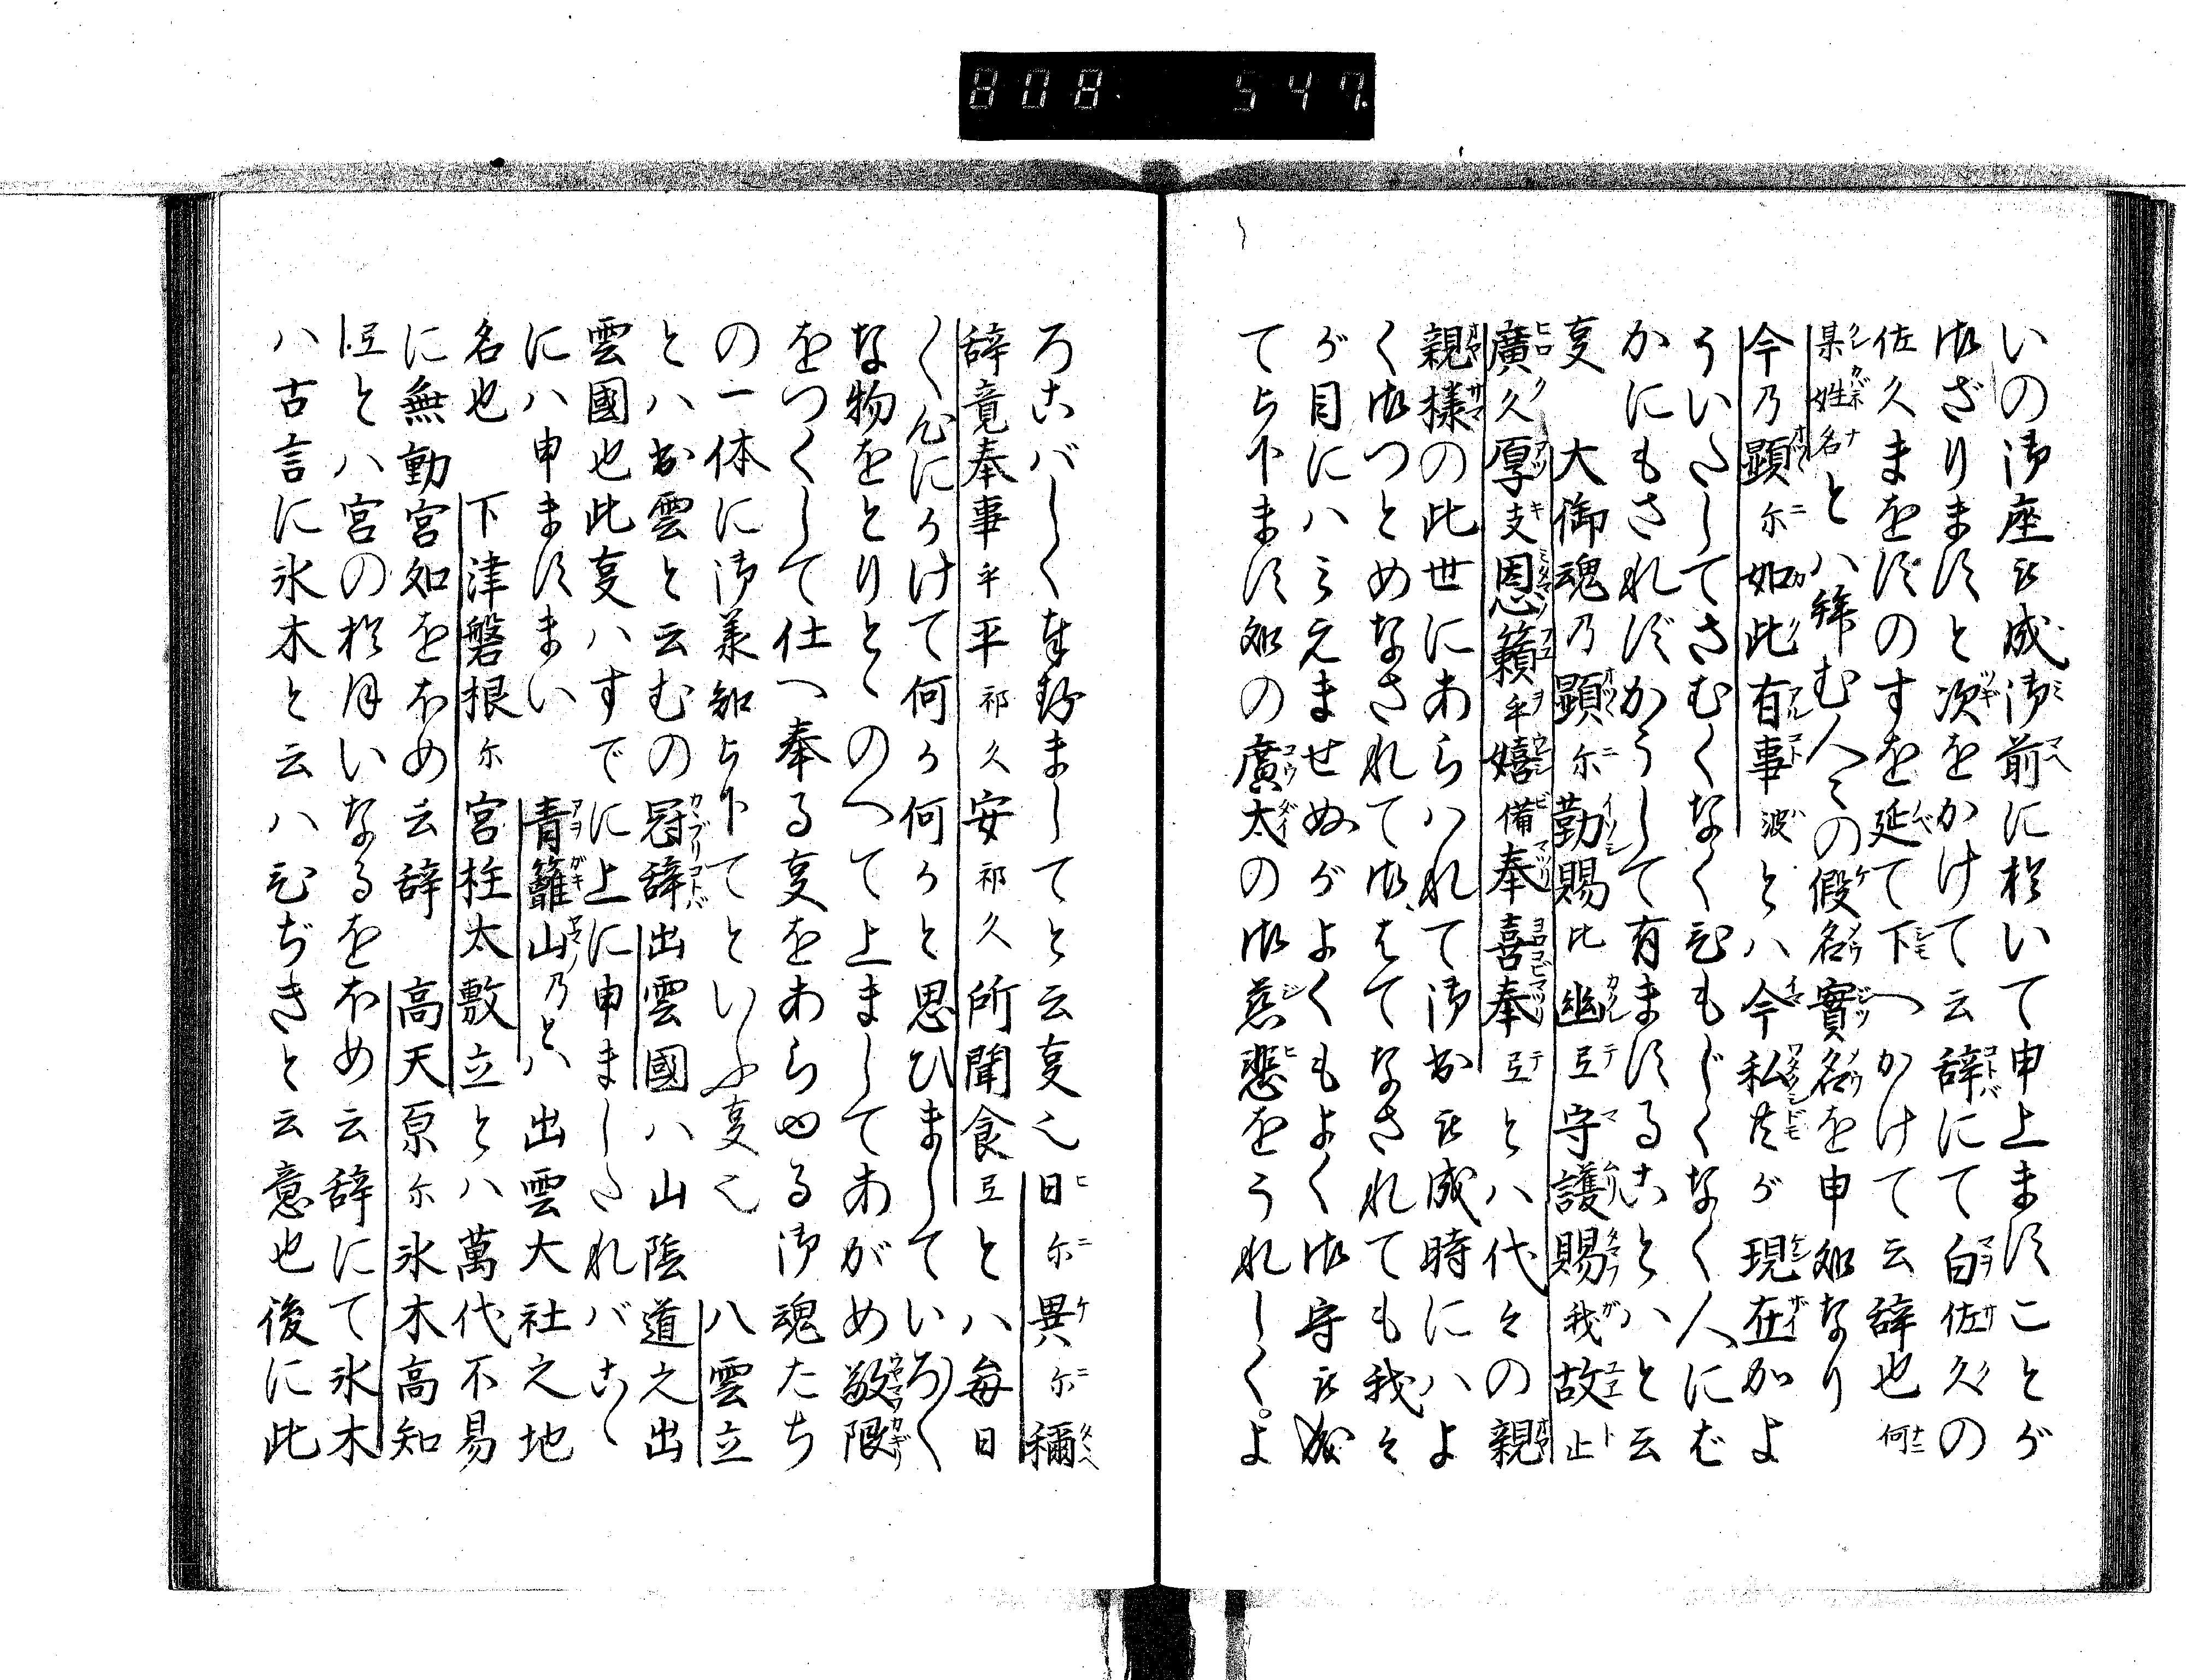 808 547.
いの御座被成御前に於いて申上ますことが
御ざりますと次をかけて云辞にて白佐久の
佐久まをすのすを延て下へかけて云辞也 何
某姓名とハ拜む人々の假名實名を申処なり
今乃顕尓如此有事波とハ今私共が現在かよ
ういたしてさむくなくひもじくなく人にむ
かにもされずかうして有ますることハと云
叓 大御魂乃顕尓勤賜比幽弖守護賜我故止
廣久厚支恩籟乎嬉備奉喜奉弖とハ代々の親
親様の此世にあらハれて御出被成時にハよ
く御つとめなされて御はてなされても我々
が目にハみえませぬがよくもよく御守被成
て被下ます処の廣太の御慈悲をうれしくよ
ろこバしく奉存ましてと云叓也 日尓異尓稱
辞竟奉事乎平祁久安祁久所聞食弖とハ毎日
〱心にかけて何か何かと思ひましていろ〱
な物をとりとゝのへて上ましてあがめ敬限
をつくして仕へ奉る叓をあらゆる御魂たち
の一体に御承知被下てといふ叓也 八雲立
とハ出雲と云むの冠辞 出雲國ハ山陰道之出
雲國也此叓ハすでに上に申ましたれバこゝ
にハ申ますまい 青籬山乃とハ出雲大社之地
名也 下津磐根尓宮柱太敷立とハ萬代不易
に無動宮処をほめ云辞 高天原尓氷木高知
弖とハ宮の於月いなるをほめ云辞にて氷木
ハ古言に氷木と云ハひぢきと云意也後に此